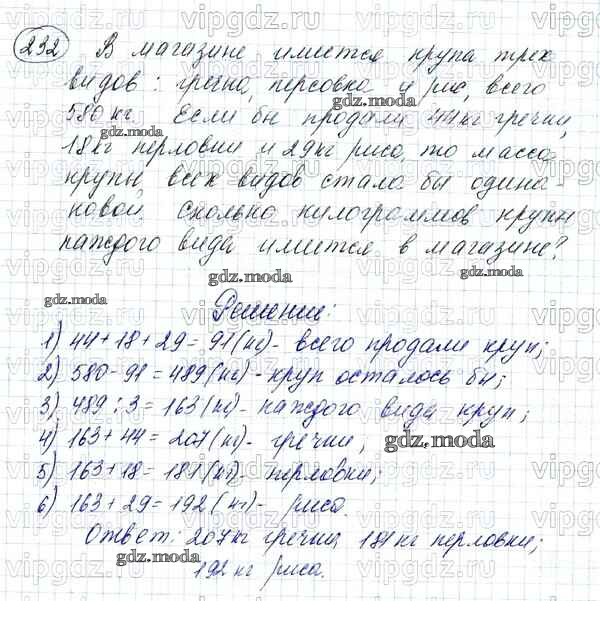 232 В магазине имется крупа трех
видов: гречка, перловка и рис, всего
580 кг. Если бы продали 44 кг гречки,
18 кг перловки и 29 кг риса, то масса
крупы всех видов стала бы одина-
ковой. Сколько килограммов крупы
каждого вида имется в магазине?
Решение:
1) 44 + 18 + 29 = 91 (кг) - всего продали круп;
2) 580 - 91 = 489 (кг) - круп осталось бы;
3) 489 : 3 = 163 (кг) - каждого вида круп;
4) 163 + 44 = 207 (кг) - гречки;
5) 163 + 18 = 181 (кг) - перловки;
6) 163 + 29 = 192 (кг) - риса.
Ответ: 207 кг гречки, 181 кг перловки;
192 кг риса.
gdz.moda
vipgdz.com